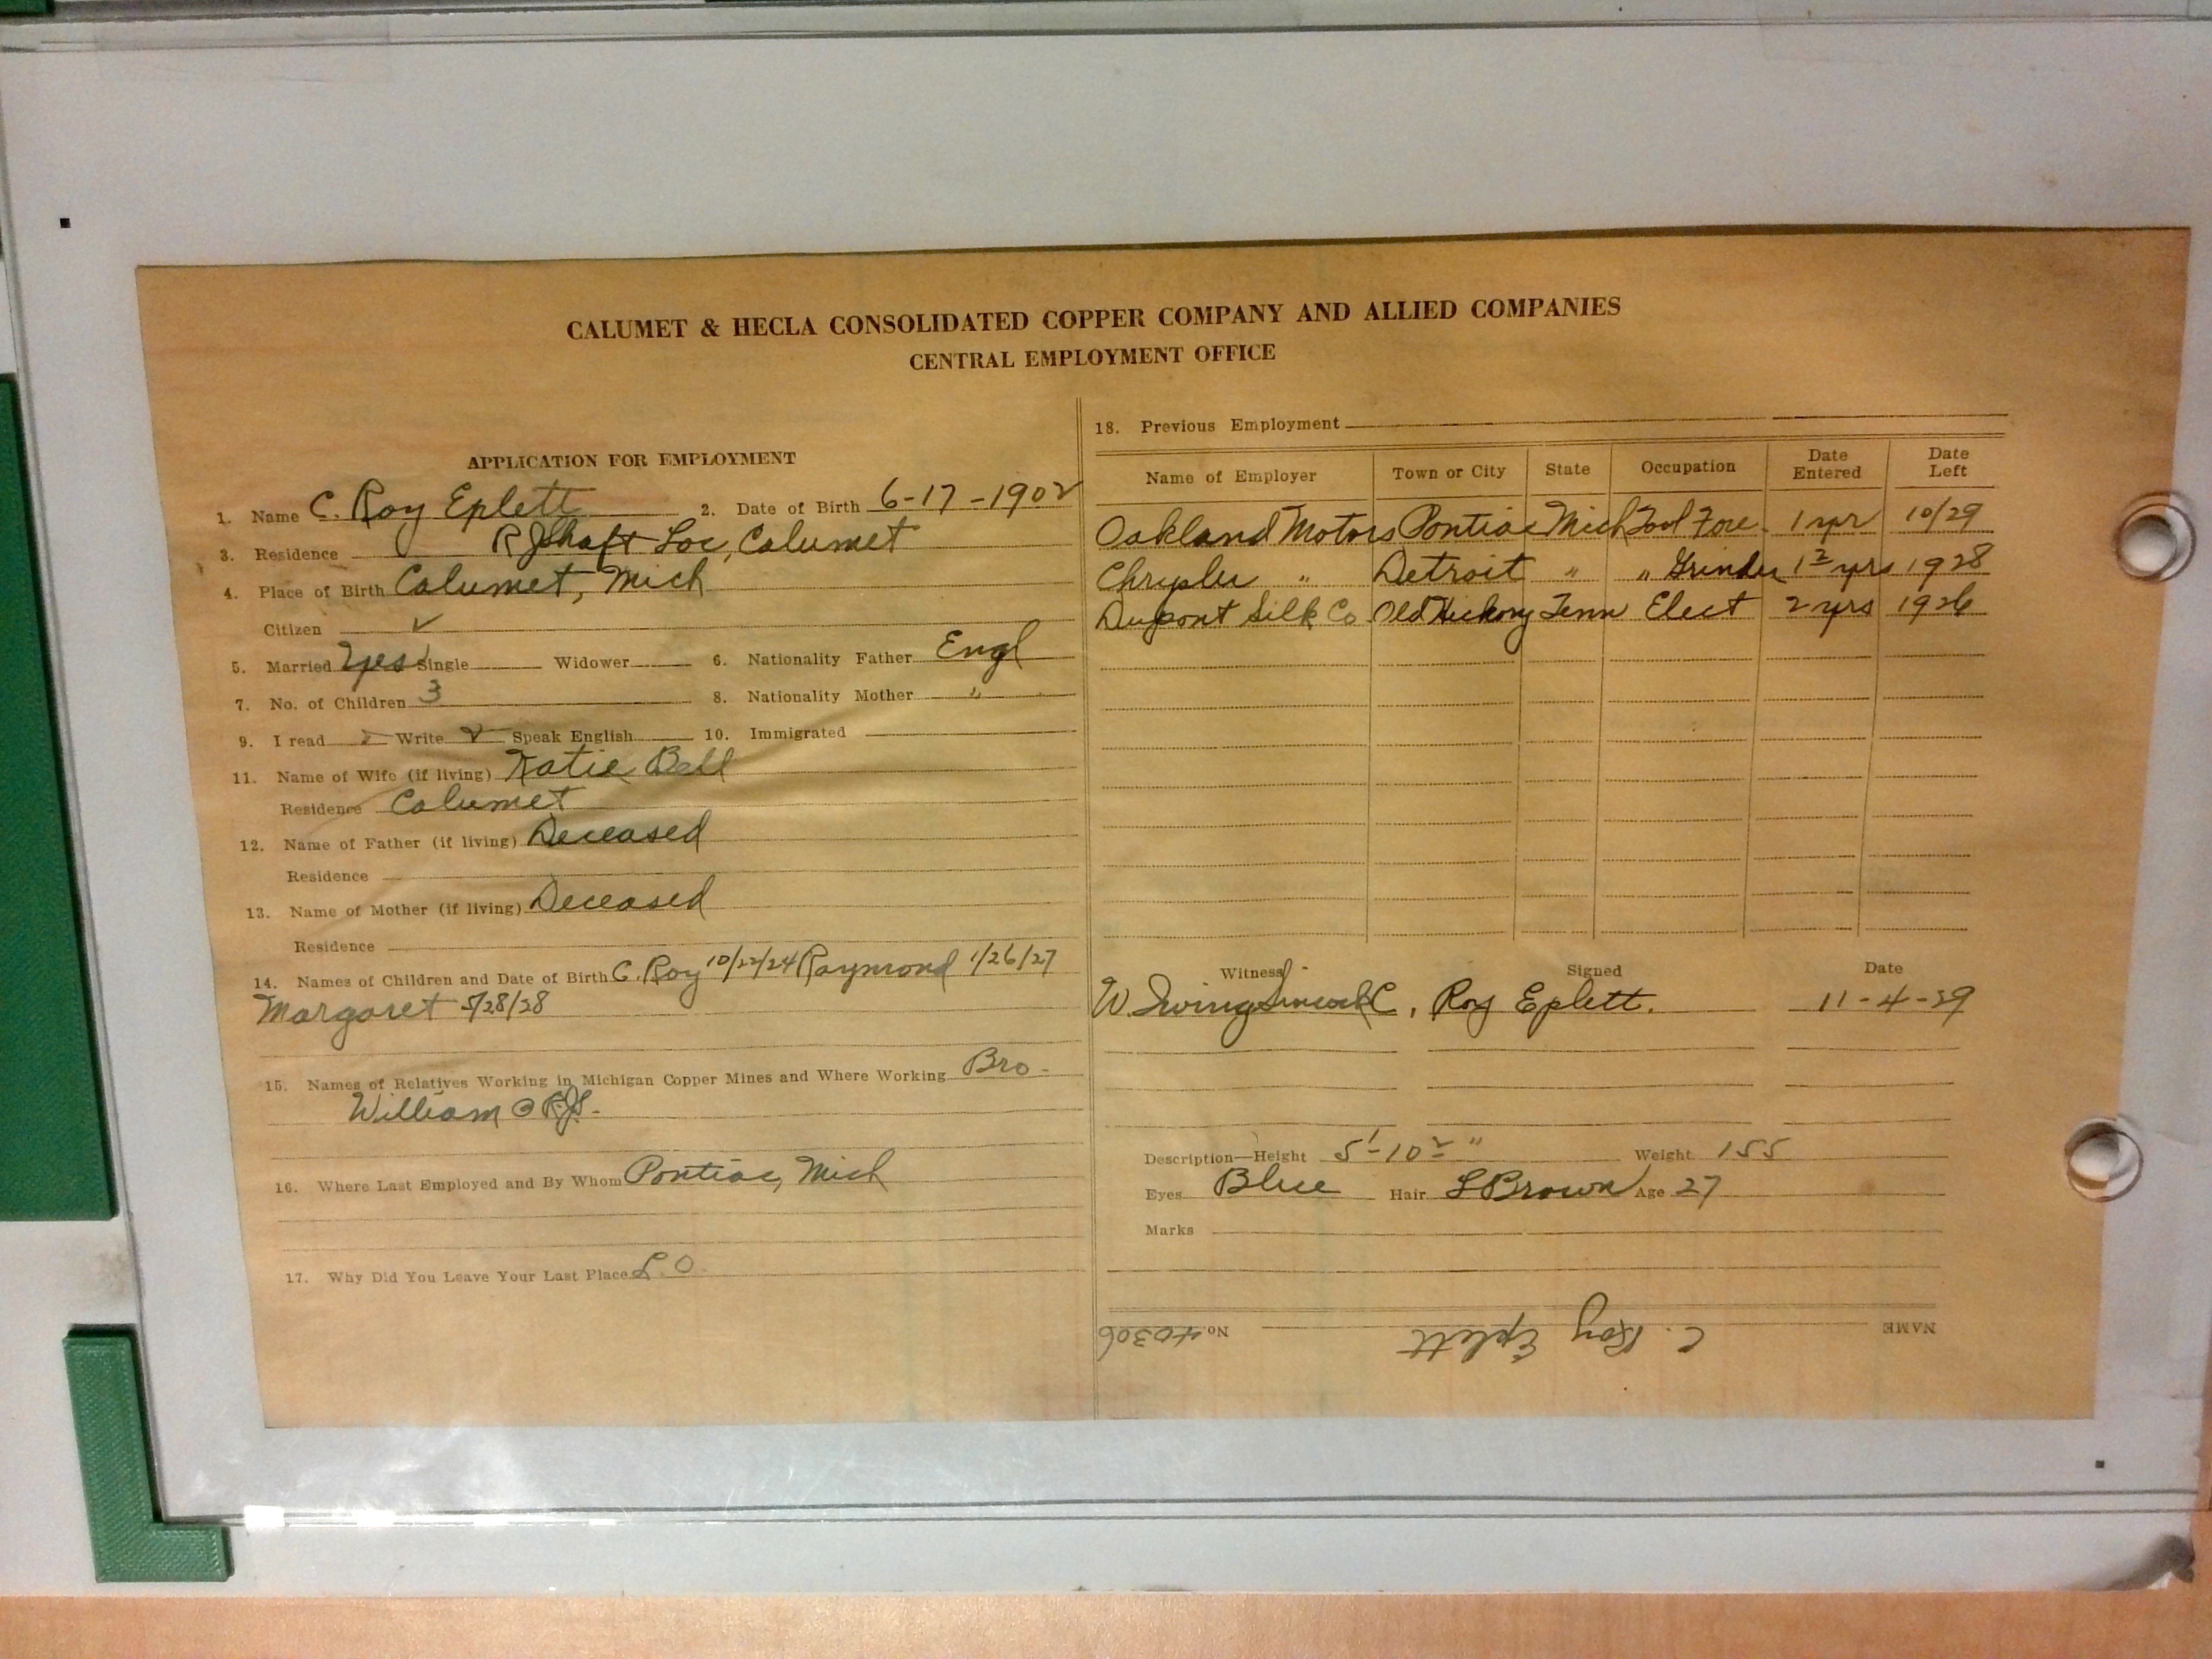 CALUMET & HECLA CONSOLIDATED COPPER COMPANY AND ALLIED COMPANIES
CENTRAL EMPLOYMENT OFFICE
APPLICATION FOR EMPLOYMENT
1. Name C. Roy Eplett 2. Date of Birth 6-17-1902
3. Residence R J Shaft Loc, Calumet
4. Place of Birth Calumet, Mich
Citizen ✓
5. Married Yes Single Widower 6. Nationality Father Engl
7. No. of Children 3 8. Nationality Mother "
9. I read ✓ Write ✓ Speak English 10. Immigrated
11. Name of Wife (if living) Katie Bell
Residence Calumet
12. Name of Father (if living) Deceased
Residence
13. Name of Mother (if living) Deceased
Residence
14. Names of Children and Date of Birth C. Roy 10/22/24 Raymond 1/26/27
Margaret 5/28/28
15. Names of Relatives Working in Michigan Copper Mines and Where Working Bro-
William @ R.J.S.
16. Where Last Employed and By Whom Pontiac, Mich
17. Why Did You Leave Your Last Place L.O.
18. Previous Employment
Name of Employer Town or City State Occupation Date Entered Date Left
Oakland Motors Pontiac Mich Tool Fore. 1 yr 10/29
Chrysler " Detroit " " Grinder 1 2 yrs 1928
Dupont Silk Co Old Hickory Tenn Elect 2 yrs 1926
Witness Signed Date
W. Irving C. Roy Eplett. 11-4-29
Description—Height 5'-10 2" Weight 155
Eyes Blue Hair L Brown Age 27
Marks
NAME C. Roy Eplett No. 40306